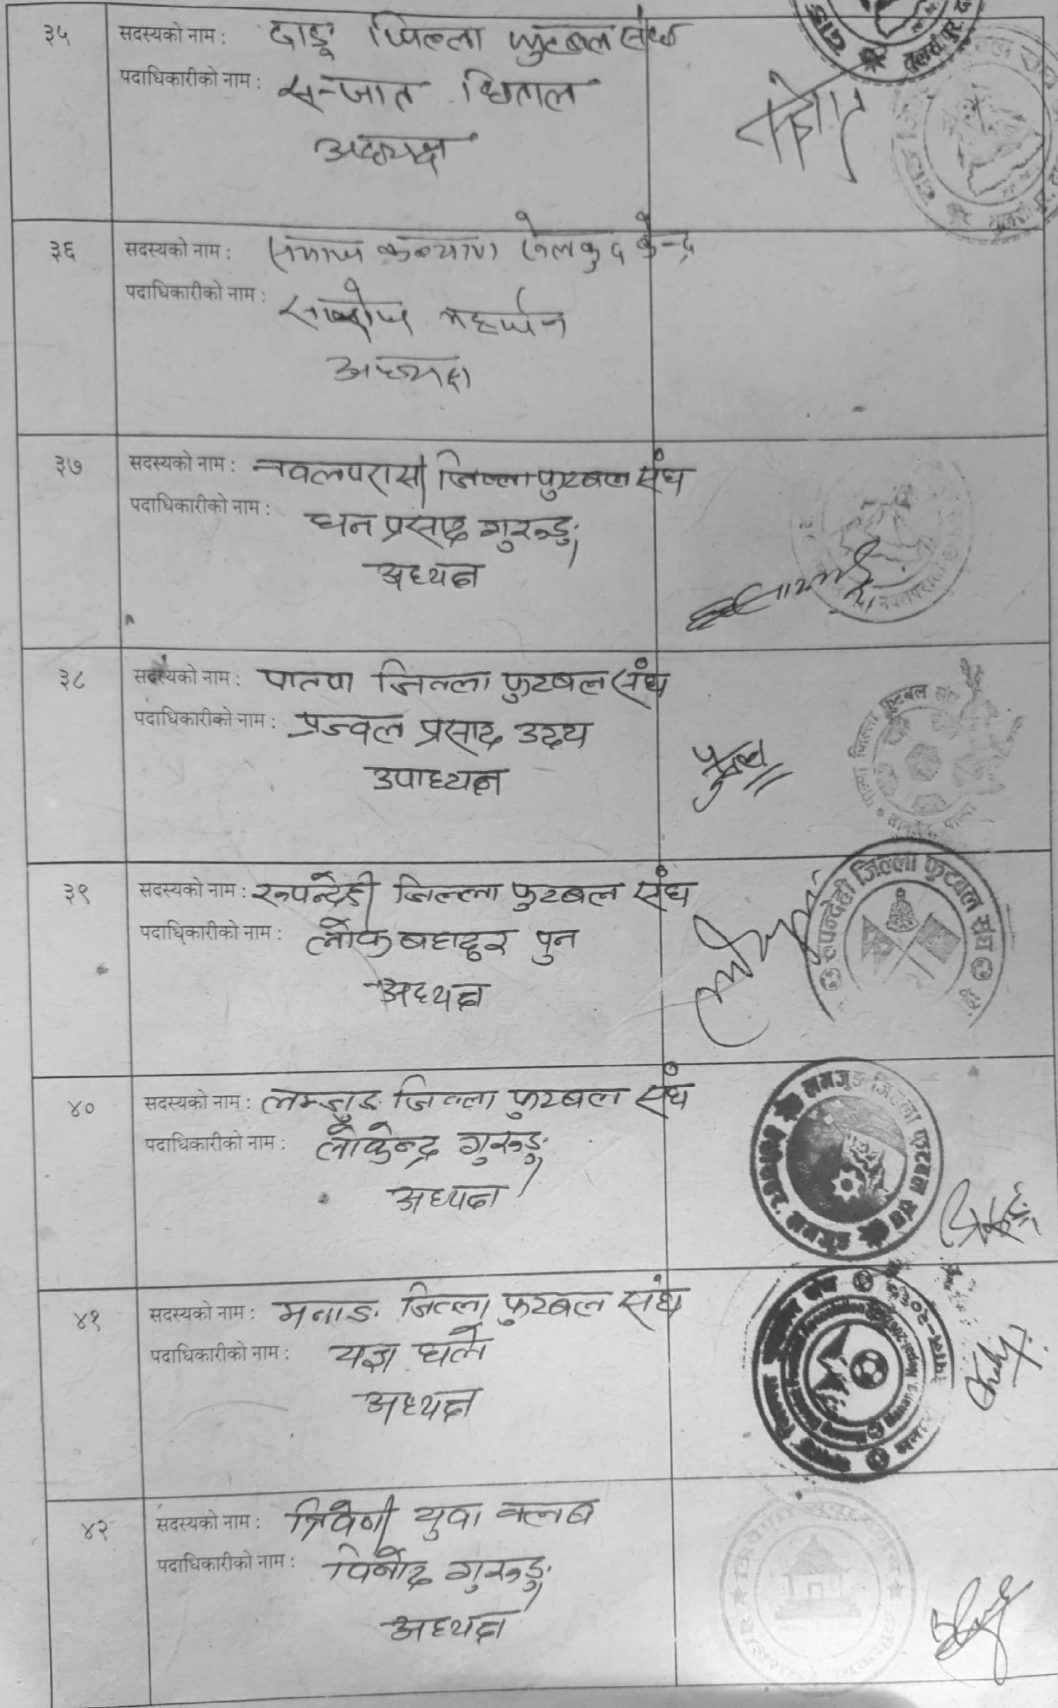 ३५
सदस्यको नाम : दाङ जिल्ला फुटबल संघ
पदाधिकारीको नाम :
अध्यक्ष
३६
सदस्यको नाम : समाज कल्याण खेलकुद केन्द्र
पदाधिकारीको नाम : महर्जन
अध्यक्ष
३७
सदस्यको नाम : नवलपरासी जिल्ला फुटबल संघ
पदाधिकारीको नाम : धन प्रसाद गुरुङ
अध्यक्ष
३८
सदस्यको नाम : पाल्पा जिल्ला फुटबल संघ
पदाधिकारीको नाम : प्रज्वल प्रसाद उदय
उपाध्यक्ष
३९
सदस्यको नाम : रुपन्देही जिल्ला फुटबल संघ
पदाधिकारीको नाम : लोक बहादुर पुन
अध्यक्ष
रुपन्देही जिल्ला फुटबल संघ
४०
सदस्यको नाम : लमजुङ जिल्ला फुटबल संघ
पदाधिकारीको नाम : लोकेन्द्र गुरुङ
अध्यक्ष
लमजुङ जिल्ला फुटबल संघ
४१
सदस्यको नाम : मनाङ जिल्ला फुटबल संघ
पदाधिकारीको नाम : यज्ञ घले
अध्यक्ष
४२
सदस्यको नाम : त्रिवेणी युवा क्लब
पदाधिकारीको नाम : विनोद गुरुङ
अध्यक्ष